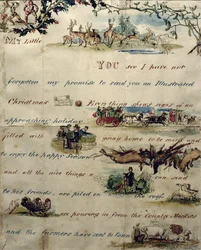 little
YOU see I have not
forgotten my promise to send you an Illustrated
Christmas Everything shows signs of an
approaching holiday
filled with going home to be merry and
to enjoy the happy Season
and all the nice things can send
to hot friends are piled on the roof
are pouring in from the County Markets
and the farmers have sent to town